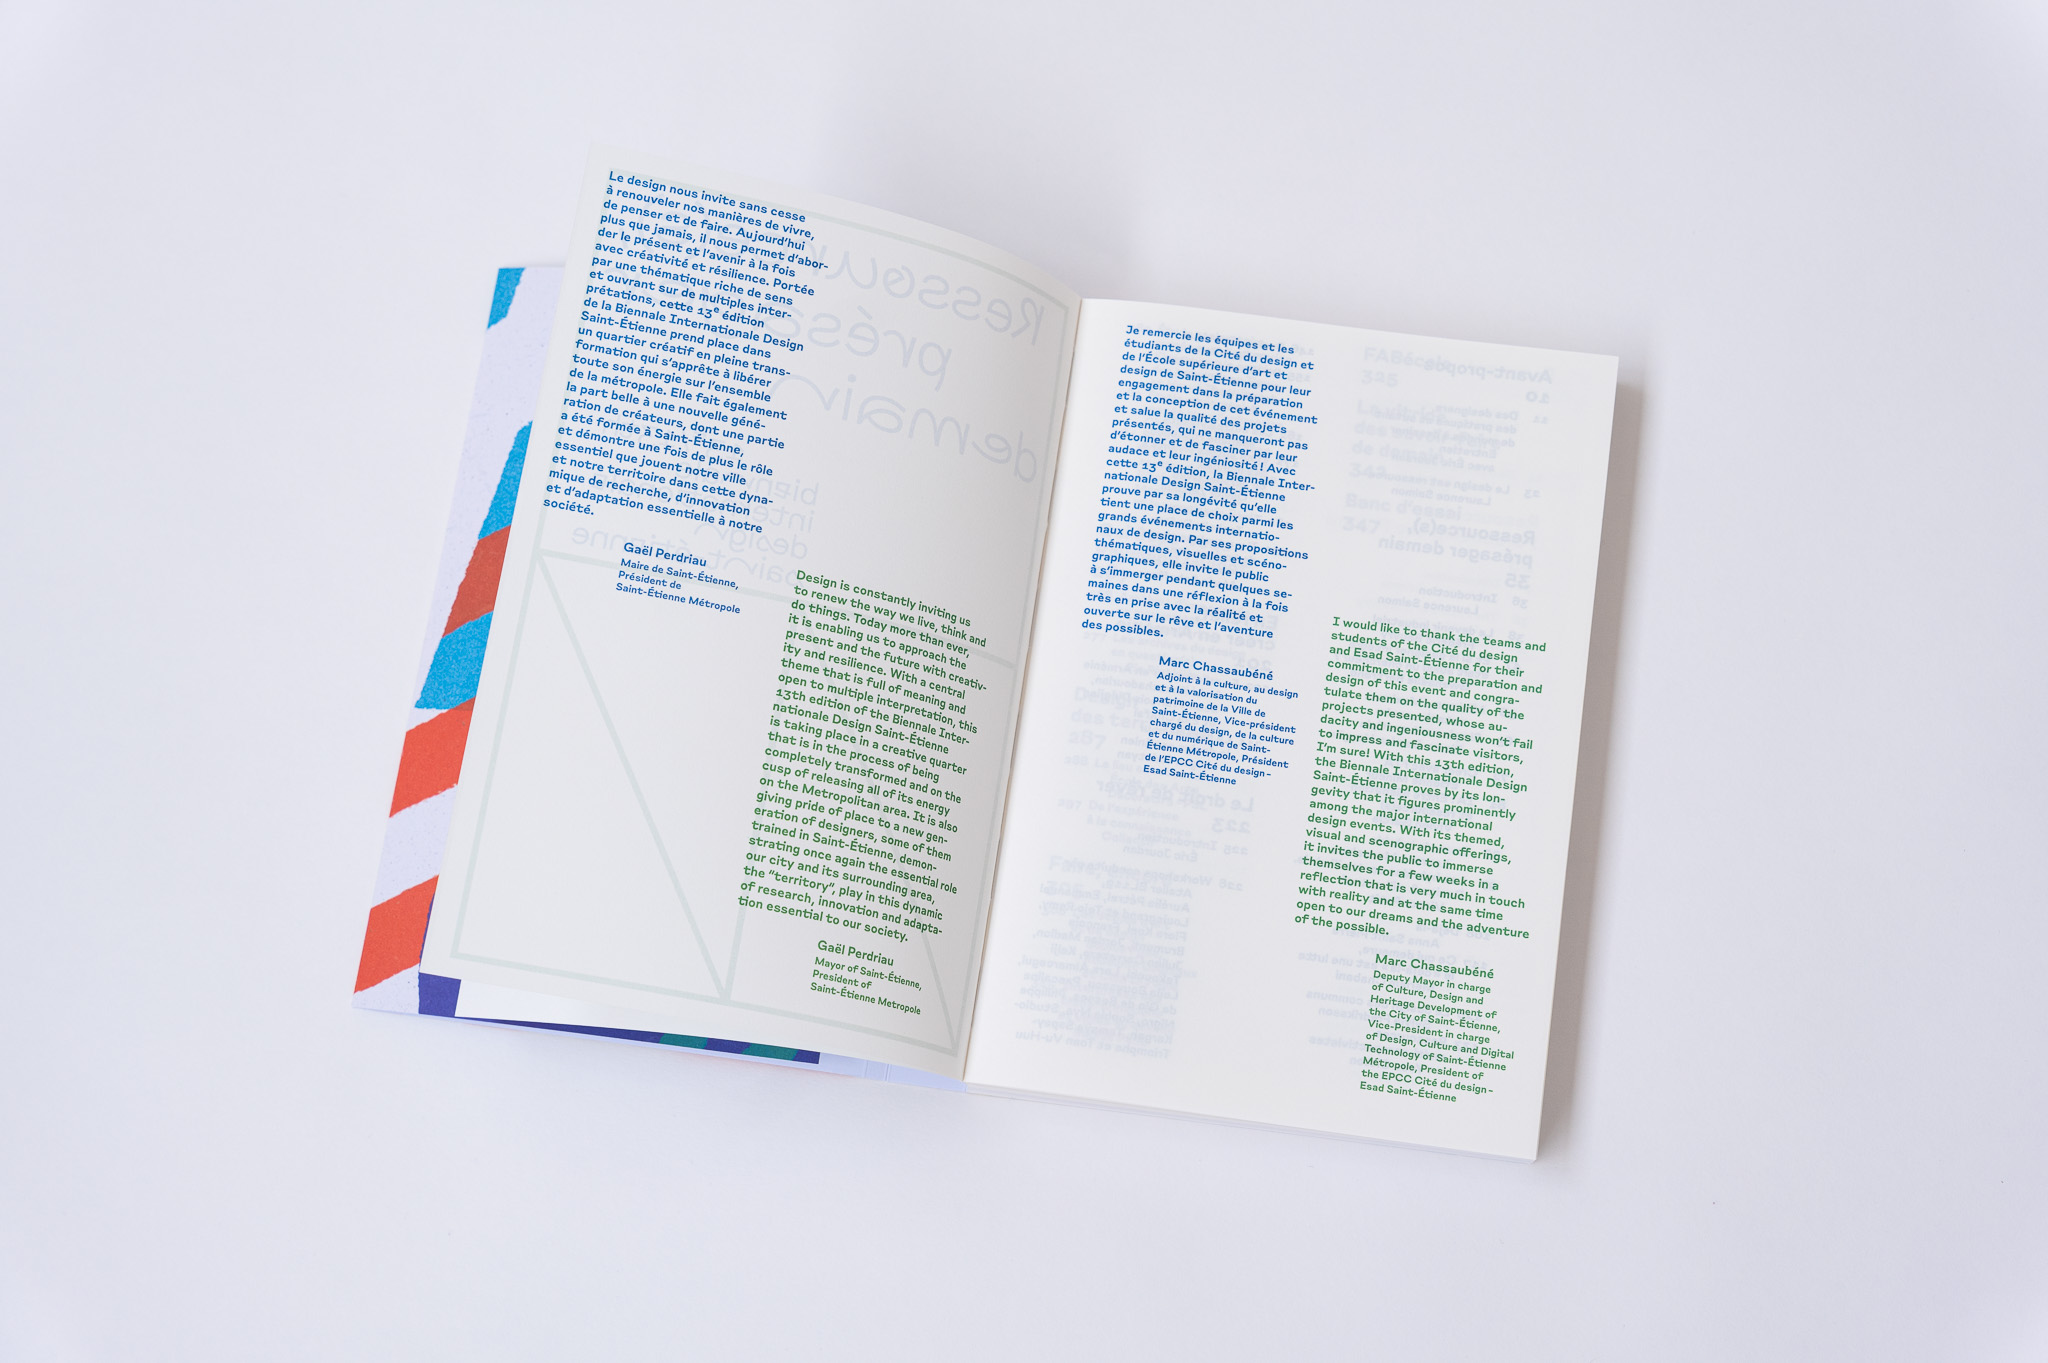 Le design nous invite sans cesse
à renouveler nos manières de vivre,
de penser et de faire. Aujourd’hui
plus que jamais, il nous permet d’abor-
der le présent et l’avenir à la fois
avec créativité et résilience. Portée
par une thématique riche de sens
et ouvrant sur de multiples inter-
prétations, cette 13e édition
de la Biennale Internationale Design
Saint-Étienne prend place dans
un quartier créatif en pleine trans-
formation qui s’apprête à libérer
toute son énergie sur l’ensemble
de la métropole. Elle fait également
la part belle à une nouvelle géné-
ration de créateurs, dont une partie
a été formée à Saint-Étienne,
et démontre une fois de plus le rôle
essentiel que jouent notre ville
et notre territoire dans cette dyna-
mique de recherche, d’innovation
et d’adaptation essentielle à notre
société.
Gaël Perdriau
Maire de Saint-Étienne,
Président de
Saint-Étienne Métropole
Design is constantly inviting us
to renew the way we live, think and
do things. Today more than ever,
it is enabling us to approach the
present and the future with creativ-
ity and resilience. With a central
theme that is full of meaning and
open to multiple interpretation, this
13th edition of the Biennale Inter-
nationale Design Saint-Étienne
is taking place in a creative quarter
that is in the process of being
completely transformed and on the
cusp of releasing all of its energy
on the Metropolitan area. It is also
giving pride of place to a new gen-
eration of designers, some of them
trained in Saint-Étienne, demon-
strating once again the essential role
our city and its surrounding area,
the “territory”, play in this dynamic
of research, innovation and adapta-
tion essential to our society.
Gaël Perdriau
Mayor of Saint-Étienne,
President of
Saint-Étienne Metropole
Je remercie les équipes et les
étudiants de la Cité du design et
de l’École supérieure d’art et
design de Saint-Étienne pour leur
engagement dans la préparation
et la conception de cet événement
et salue la qualité des projets
présentés, qui ne manqueront pas
d’étonner et de fasciner par leur
audace et leur ingéniosité ! Avec
cette 13e édition, la Biennale Inter-
nationale Design Saint-Étienne
prouve par sa longévité qu’elle
tient une place de choix parmi les
grands événements internatio-
naux de design. Par ses propositions
thématiques, visuelles et scéno-
graphiques, elle invite le public
à s’immerger pendant quelques se-
maines dans une réflexion à la fois
très en prise avec la réalité et
ouverte sur le rêve et l’aventure
des possibles.
Marc Chassaubéné
Adjoint à la culture, au design
et à la valorisation du
patrimoine de la Ville de
Saint-Étienne, Vice-président
chargé du design, de la culture
et du numérique de Saint-
Étienne Métropole, Président
de l’EPCC Cité du design –
Esad Saint-Étienne
I would like to thank the teams and
students of the Cité du design
and Esad Saint-Étienne for their
commitment to the preparation and
design of this event and congra-
tulate them on the quality of the
projects presented, whose au-
dacity and ingeniousness won’t fail
to impress and fascinate visitors,
I’m sure! With this 13th edition,
the Biennale Internationale Design
Saint-Étienne proves by its lon-
gevity that it figures prominently
among the major international
design events. With its themed,
visual and scenographic offerings,
it invites the public to immerse
themselves for a few weeks in a
reflection that is very much in touch
with reality and at the same time
open to our dreams and the adventure
of the possible.
Marc Chassaubéné
Deputy Mayor in charge
of Culture, Design and
Heritage Development of
the City of Saint-Étienne,
Vice-President in charge
of Design, Culture and Digital
Technology of Saint-Étienne
Métropole, President of
the EPCC Cité du design –
Esad Saint-Étienne